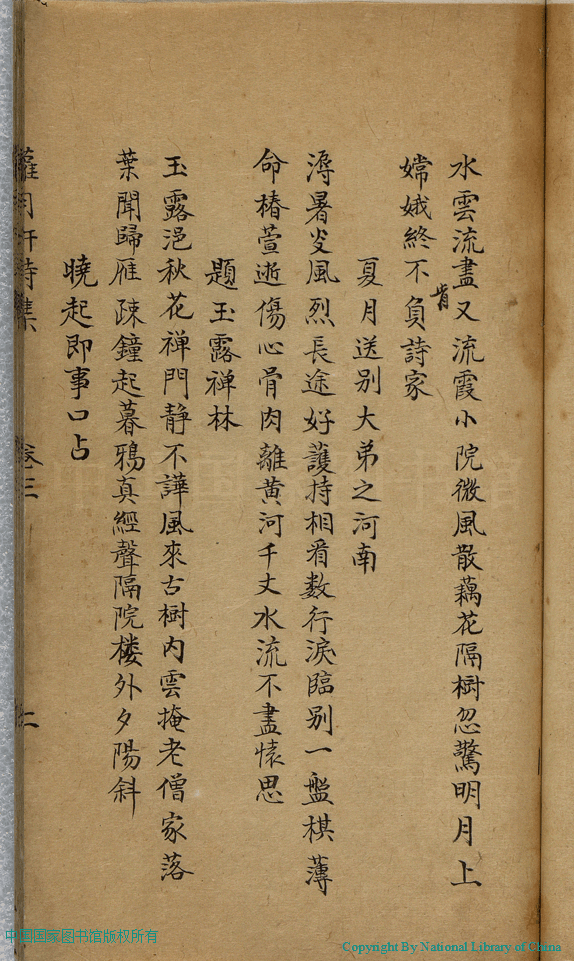 水雲流盡又流霞小院微風散藕花隔樹忽驚明月上
嫦娥終不肯負詩家
夏月送别大弟之河南
溽暑炎風烈長途好護持相看數行淚臨别一盤棋薄
命椿萱逝傷心骨肉離黄河千丈水流不盡懷思
題玉露禅林
玉露浥秋花禅門静不譁風來古樹内雲掩老僧家落
葉聞歸雁疎鐘起暮鴉真經聲隔院楼外夕陽斜
曉起即事口占
蘿月軒詩集 卷三 二
中国国家图书馆
中国国家图书馆版权所有
Copyright By National Library of China